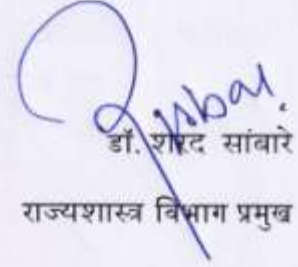 डॉ. शरद सांबारे
राज्यशास्त्र विभाग प्रमुख